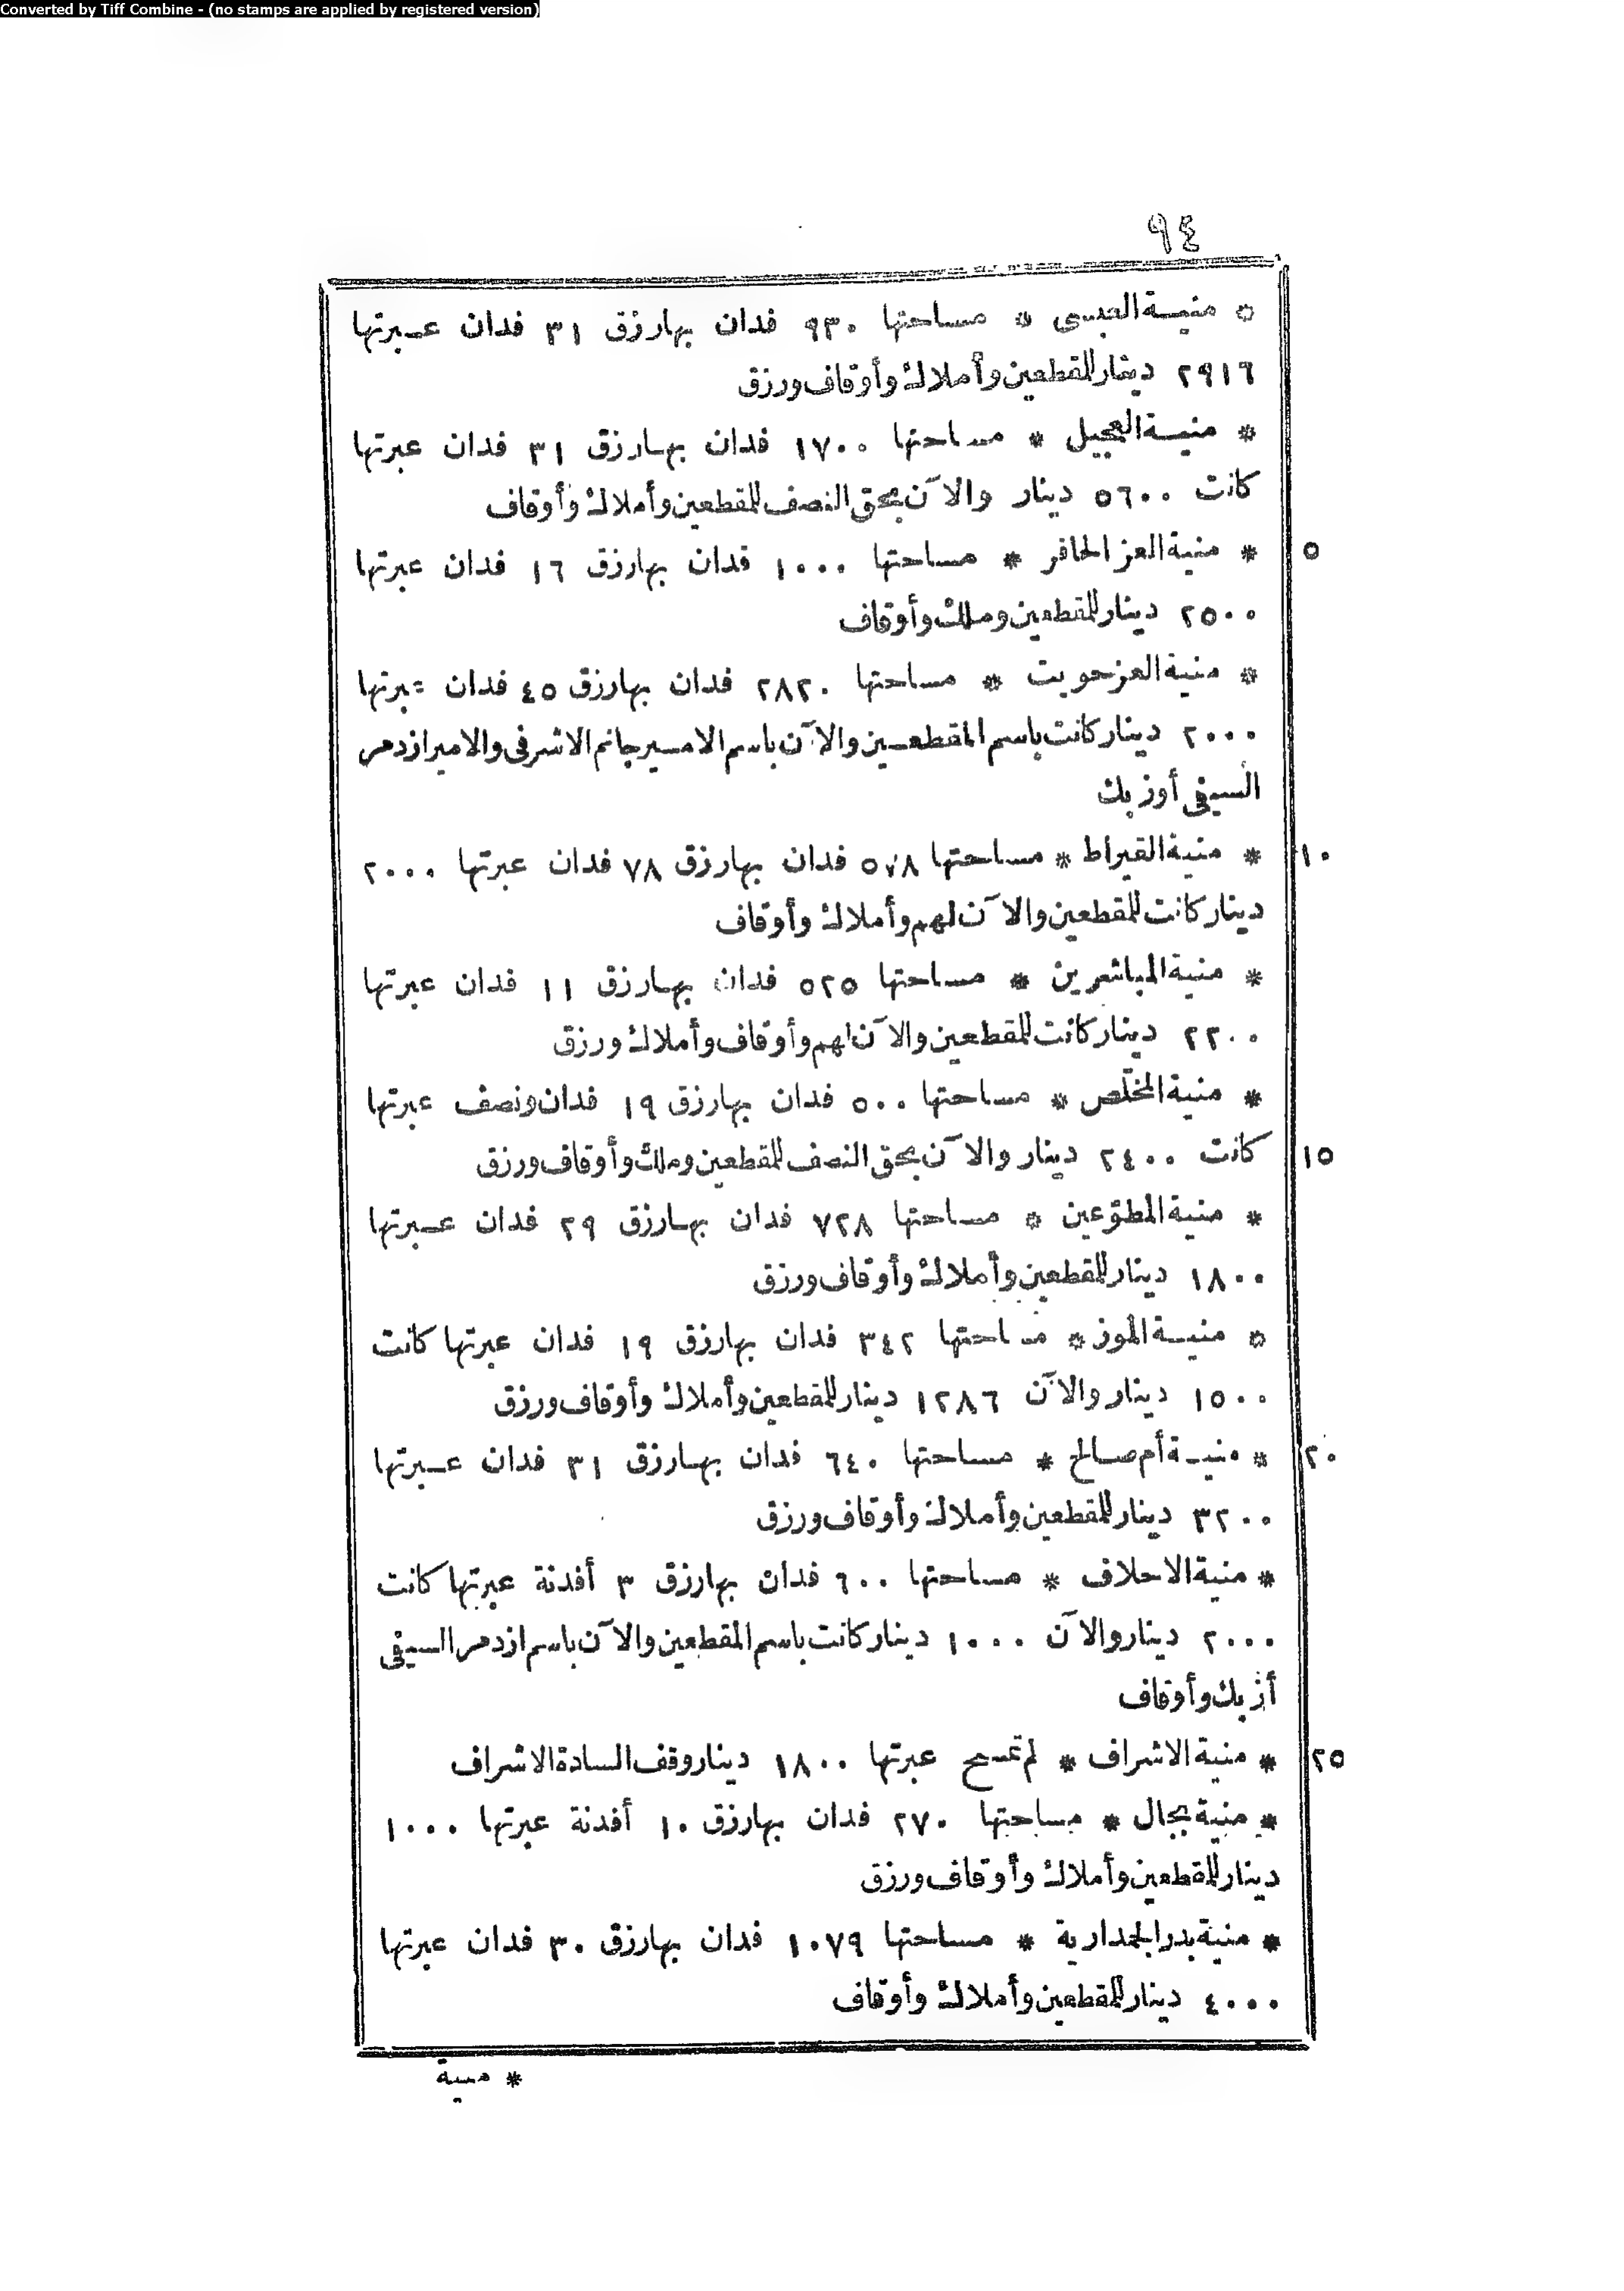 Converted by Tiff Combine - (no stamps are applied by registered version)
٩٤
* منيـة العبسى * مساحتها ٩٣٠ فدان بهارزق ٣١ فدان عـبرتها
٢٩١٦ دينار للمقطعين وأملاك وأوقاف ورزق
* منيـة العجيل * مساحتها ١٧٠٠ فدان بهـارزق ٣١ فدان عبرتها
كانت ٥٦٠٠ دينار والآن بحق النصف للمقطعين وأملاك وأوقاف
٥ * منية العز الحافر * مساحتها ١٠٠٠ فدان بهارزق ١٦ فدان عبرتها
٢٥٠٠ دينار للمقطعين وملك وأوقاف
* منية العز حويت * مساحتها ٢٨٢٠ فدان بهارزق ٤٥ فدان عبرتها
٢٠٠٠ دينار كانت باسم المقطعـين والآن باسم الامـير جانم الاشرفى والامير ازدمر
السيفى أوزبك
١٠ * منية القيراط * مساحتها ٥٧٨ فدان بهارزق ٧٨ فدان عبرتها ٢٠٠٠
دينار كانت للمقطعين والآن لهم وأملاك وأوقاف
* منية المباشرين * مساحتها ٥٢٥ فدان بهـارزق ١١ فدان عبرتها
٢٢٠٠ دينار كانت للمقطعين والآن لهم وأوقاف وأملاك ورزق
* منية المخلّص * مساحتها ٥٠٠ فدان بهارزق ١٩ فدان ونصف عبرتها
١٥ كانت ٢٤٠٠ دينار والآن بحق النصف للمقطعين وملك وأوقاف ورزق
* منية المطوّعين * مساحتها ٧٢٨ فدان بهـارزق ٢٩ فدان عـبرتها
١٨٠٠ دينار للمقطعين وأملاك وأوقاف ورزق
* منيـة الموز * مساحتها ٣٤٢ فدان بهارزق ١٩ فدان عبرتها كانت
١٥٠٠ دينار والآن ١٢٨٦ دينار للمقطعين وأملاك وأوقاف ورزق
٢٠ * منيـة أم صالح * مساحتها ٦٤٠ فدان بهـارزق ٣١ فدان عـبرتها
٣٢٠٠ دينار للمقطعين وأملاك وأوقاف ورزق
* منية الاحلاف * مساحتها ٦٠٠ فدان بهارزق ٣ أفدنة عبرتها كانت
٢٠٠٠ دينار والآن ١٠٠٠ دينار كانت باسم المقطعين والآن باسم ازدمر السيفى
أزبك وأوقاف
٢٥ * منية الاشراف * لم تمسح عبرتها ١٨٠٠ دينار وقف السادة الاشراف
* منية بجال * مساحتها ٢٧٠ فدان بهارزق ١٠ أفدنة عبرتها ١٠٠٠
دينار للمقطعين وأملاك وأوقاف ورزق
* منية بدر الجمدارية * مساحتها ١٠٧٩ فدان بهارزق ٣٠ فدان عبرتها
٤٠٠٠ دينار للمقطعين وأملاك وأوقاف
* منية